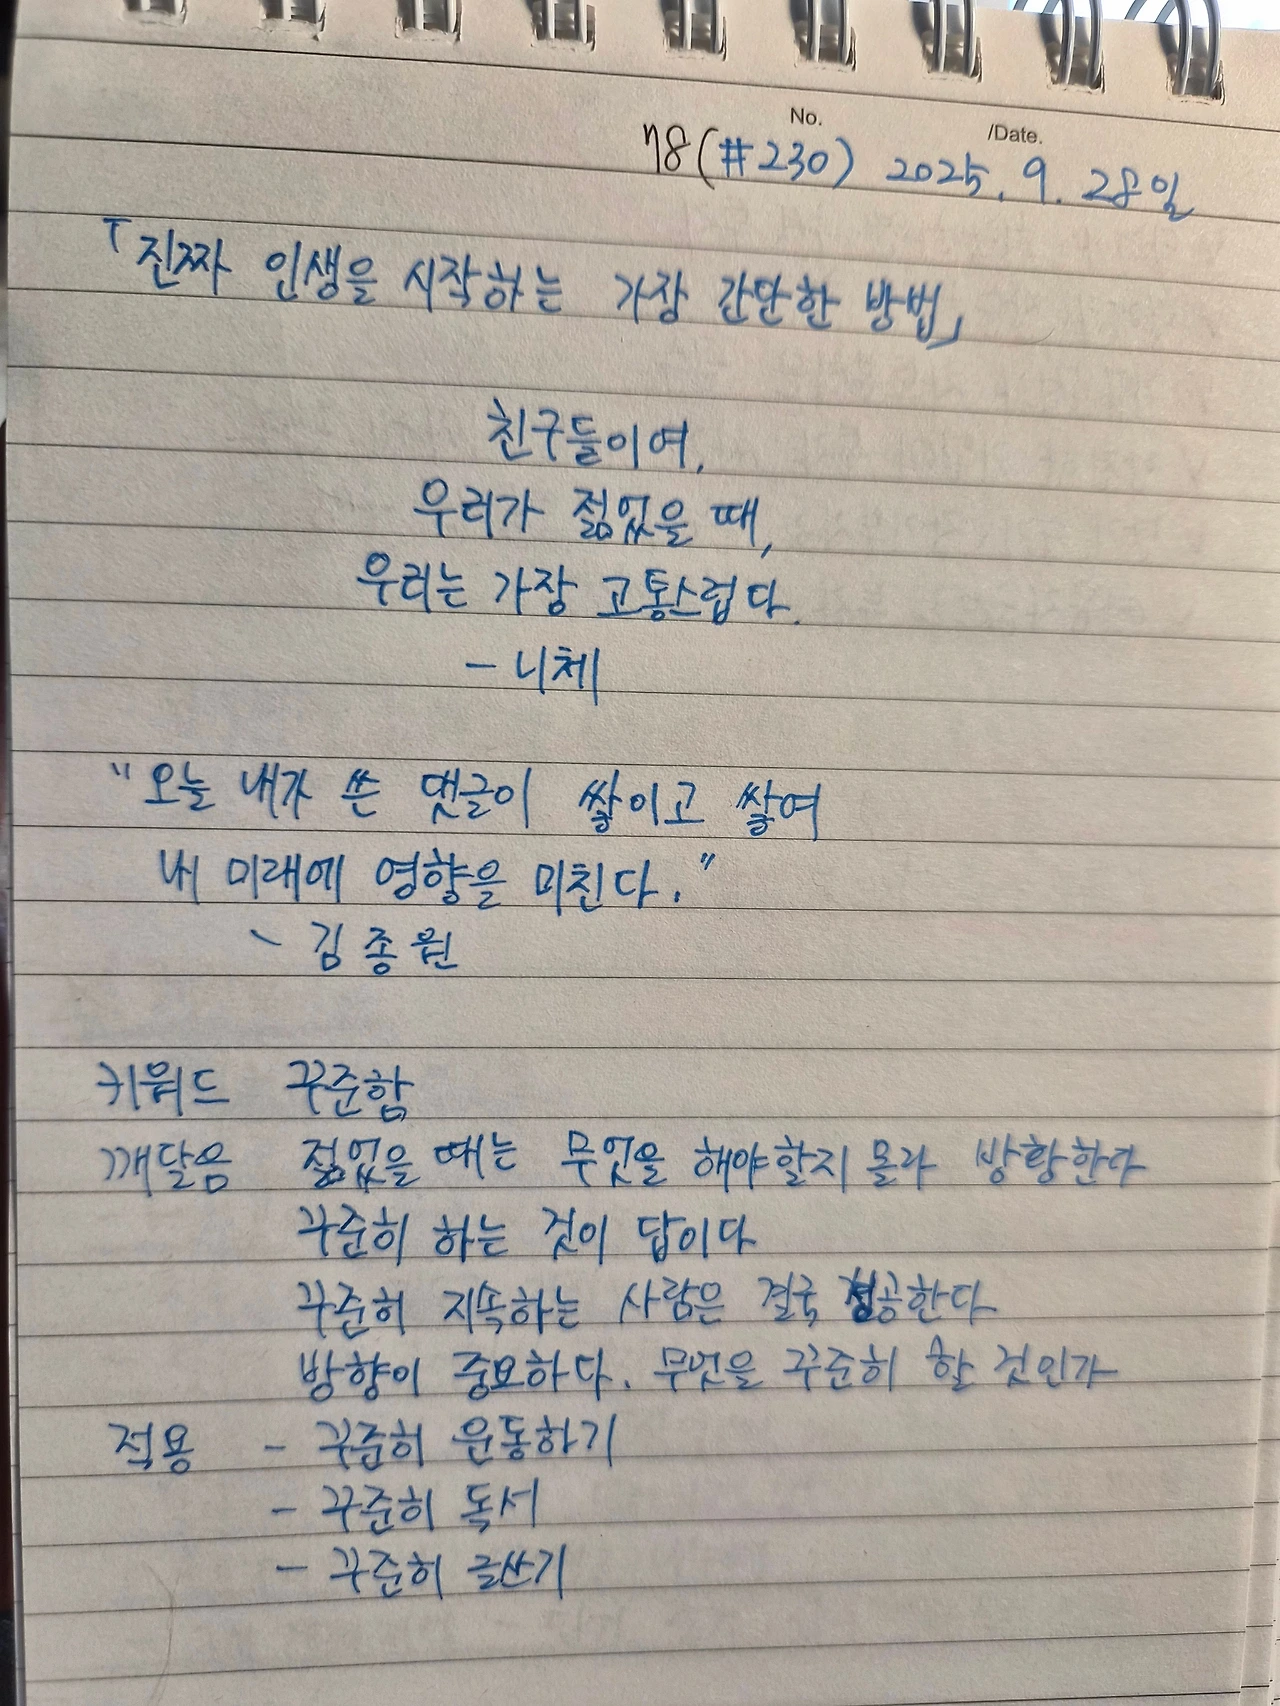 No. /Date.
78(#230) 2025. 9. 28일
「진짜 인생을 시작하는 가장 간단한 방법」
친구들이여,
우리가 젊었을 때,
우리는 가장 고통스럽다.
- 니체
"오늘 내가 쓴 댓글이 쌓이고 쌓여
내 미래에 영향을 미친다."
- 김종원
키워드 꾸준함
깨달음 젊었을 때는 무엇을 해야할지 몰라 방황한다
꾸준히 하는 것이 답이다
꾸준히 지속하는 사람은 결국 성공한다
방향이 중요하다. 무엇을 꾸준히 할 것인가
적용 - 꾸준히 운동하기
- 꾸준히 독서
- 꾸준히 글쓰기